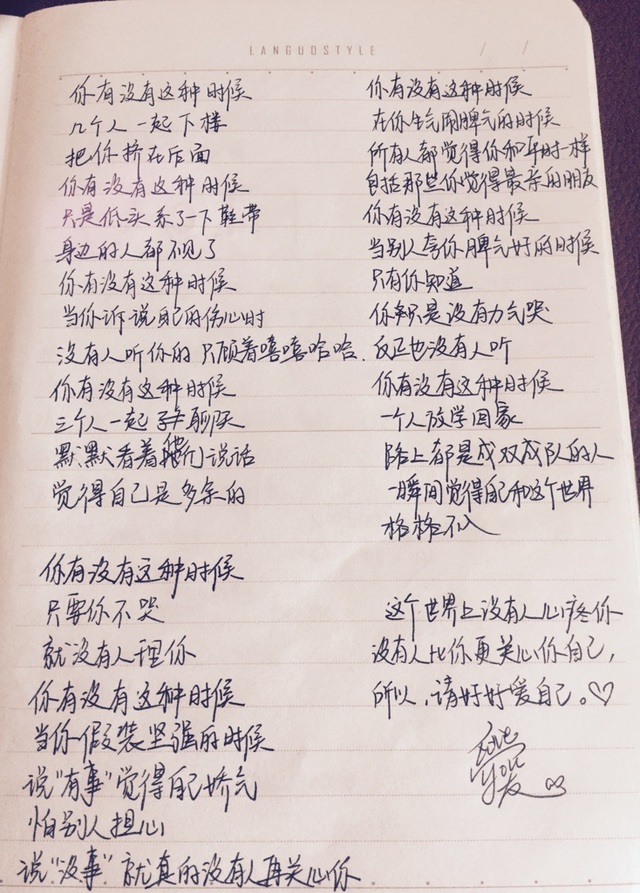 LANGUOSTYLE
你有没有这种时候
几个人一起下楼
把你挤在后面
你有没有这种时候
只是低头系了一下鞋带
身边的人都不见了
你有没有这种时候
当你诉说自己的伤心时
没有人听你的 只顾着嘻嘻哈哈.
你有没有这种时候
三个人一起 聊天
默默看着她们说话
觉得自己是多余的
你有没有这种时候
只要你不哭
就没有人理你
你有没有这种时候
当你假装坚强的时候
说"有事"觉得自己娇气
怕别人担心
说"没事"就真的没有人再关心你
你有没有这种时候
在你生气闹脾气的时候
所有人都觉得你和平时一样
包括那些你觉得最亲的朋友
你有没有这种时候
当别人夸你脾气好的时候
只有你知道
你只是没有力气哭
反正也没有人听
你有没有这种时候
一个人放学回家
路上都是成双成队的人
一瞬间觉得自己和这个世界
格格不入
这个世界上没有人心疼你
没有人比你更关心你自己,
所以,请好好爱自己。♡